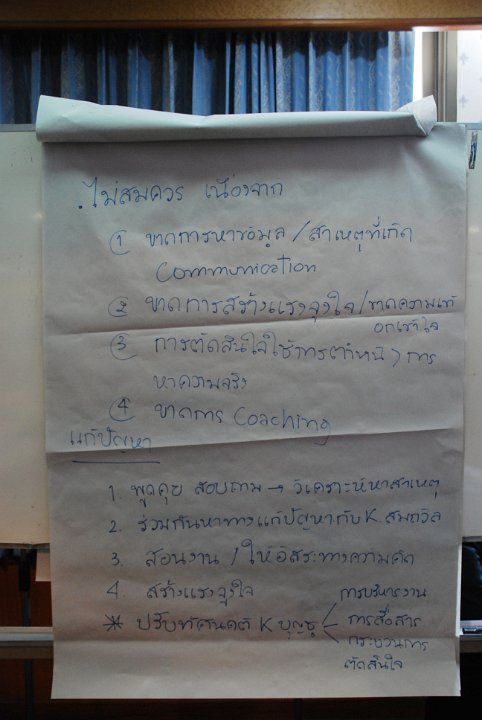 . ไม่สมควร เนื่องจาก
① ขาดการหาข้อมูล / สาเหตุที่เกิด
Communication
② ขาดการสร้างแรงจูงใจ / ขาดความเข้า
อกเข้าใจ
③ การตัดสินใจใช้การตำหนิ > การ
หาความจริง
④ ขาดการ Coaching
แก้ปัญหา
1. พูดคุย สอบถาม → วิเคราะห์หาสาเหตุ
2. ร่วมกันหาทางแก้ปัญหากับ K. สมถวิล
3. สอนงาน / ให้อิสระทางความคิด
4. สร้างแรงจูงใจ
* ปรับทัศนคติ K บุญชู
การบริหารงาน
การสื่อสาร
กระบวนการ
ตัดสินใจ